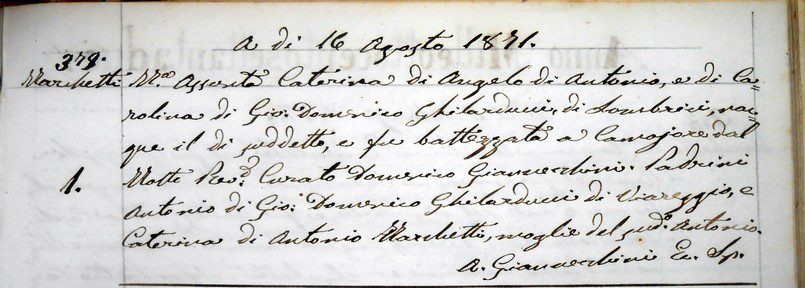 A di 16 Agosto 1871.
379.
Marchetti M.ª Assunta Caterina di Angelo di Antonio, e di Ca=
rolina di Gio: Domenico Ghilarducci, di Lombrici, nac=
que il di suddetto, e fu battezzata a Camajore dal
1. Molto Rev.d Curato Domenico Giannecchini. Padrini
Antonio di Gio: Domenico Ghilarducci di Viareggio, e
Caterina di Antonio Marchetti, moglie del sud.º Antonio.
A. Giannecchini Ec. Sp.